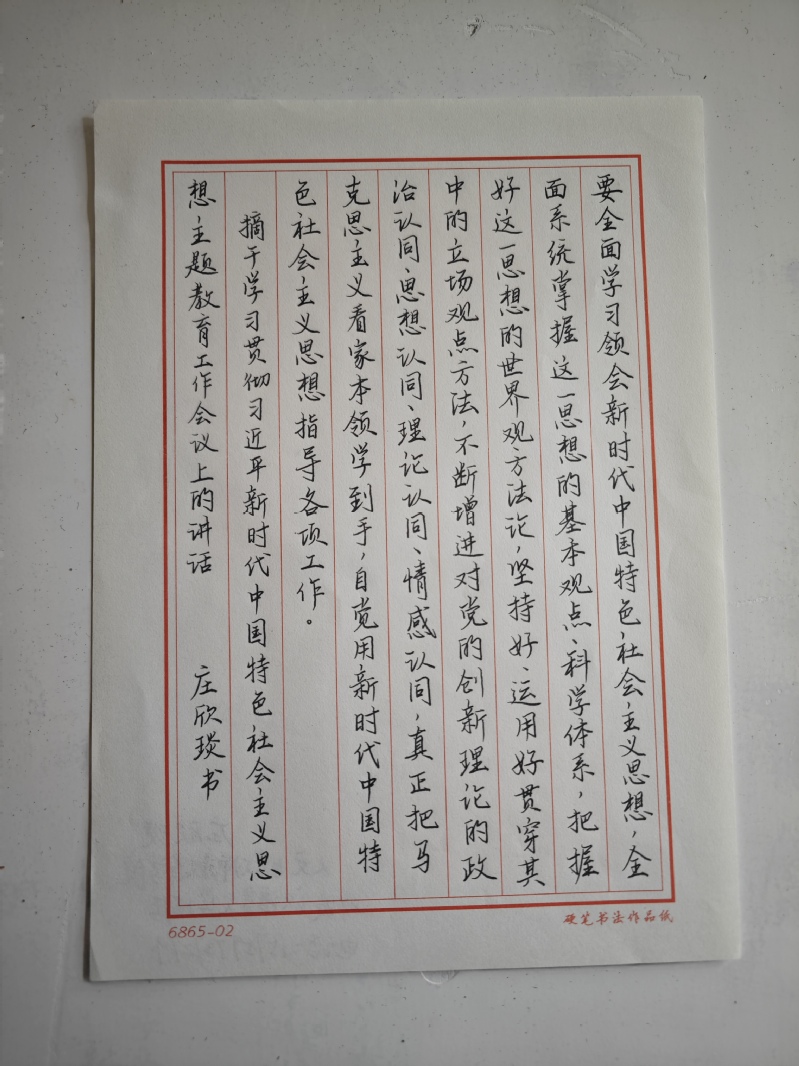 要全面学习领会新时代中国特色社会主义思想，全
面系统掌握这一思想的基本观点、科学体系，把握
好这一思想的世界观方法论，坚持好、运用好贯穿其
中的立场观点方法，不断增进对党的创新理论的政
治认同、思想认同、理论认同、情感认同，真正把马
克思主义看家本领学到手，自觉用新时代中国特
色社会主义思想指导各项工作。
摘于学习贯彻习近平新时代中国特色社会主义思
想主题教育工作会议上的讲话 庄欣琰书
6865-02
硬笔书法作品纸